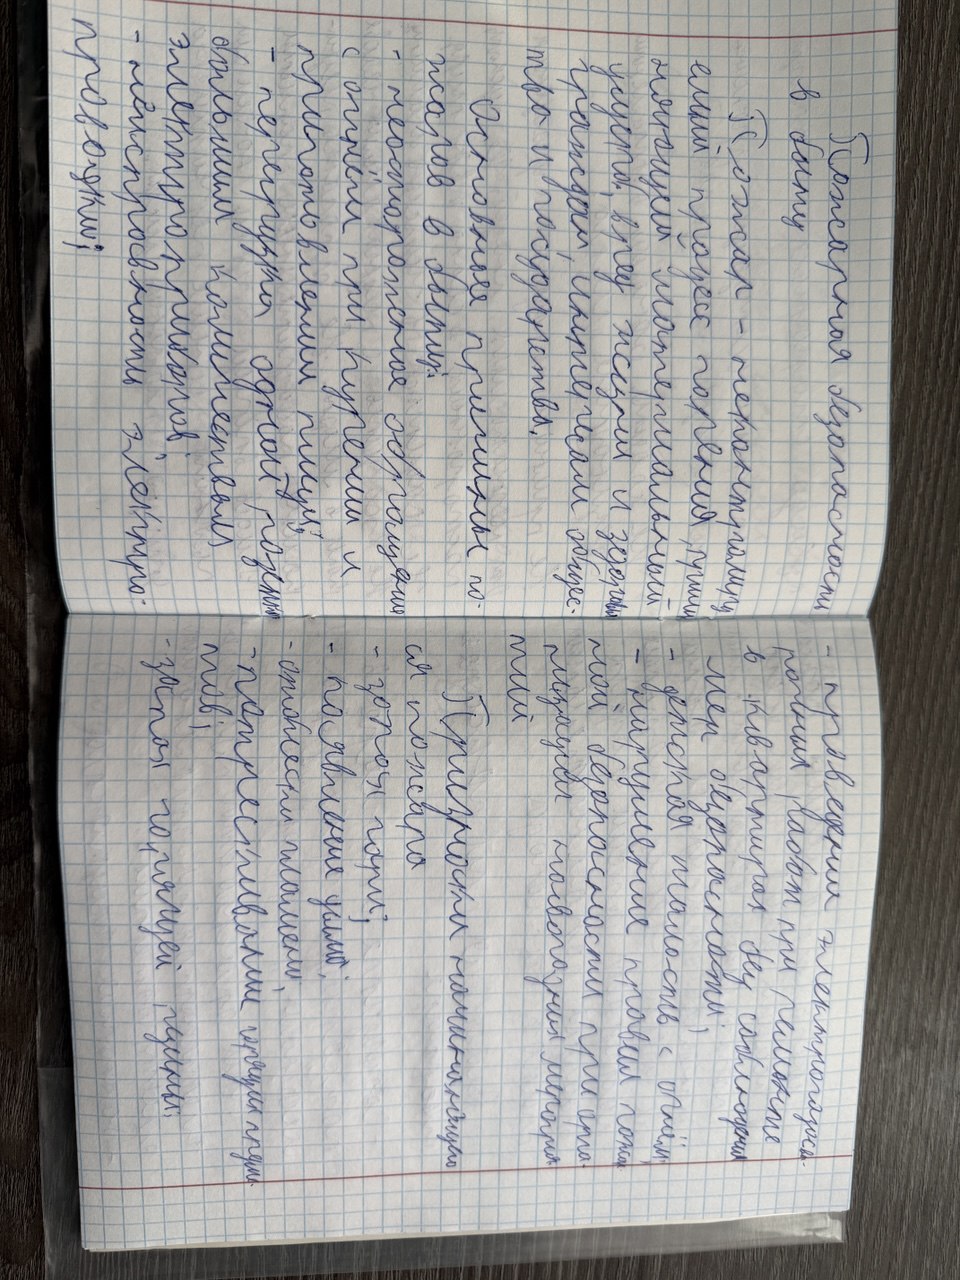 Пожарная безопасность
в быту
Пожар - неконтролиру
емый процесс горения, причи
няющий материальный
ущерб, вред жизни и здоровью
граждан, интересам общес-
тва и государства.
Основные причины по-
жаров в быту:
- неосторожное обращения
с огнём при курении и
приготовлении пищи;
- перегрузка одной розетки
большим количеством
электроприборов;
- неисправность электро-
проводки;
- проведении электрогазосва-
рочных работ при ремонте
в квартирах без соблюдения
мер безопасности;
- детская шалость с огнём;
- нарушение правил пожар
ной безопасности при орга-
низации новогодних меропри-
тий
Признаки начинающего
ся пожара
- запах гари;
- появление дыма;
- отблески пламени;
- потрескивание горящих предме-
тов;
- запах горящей резины;